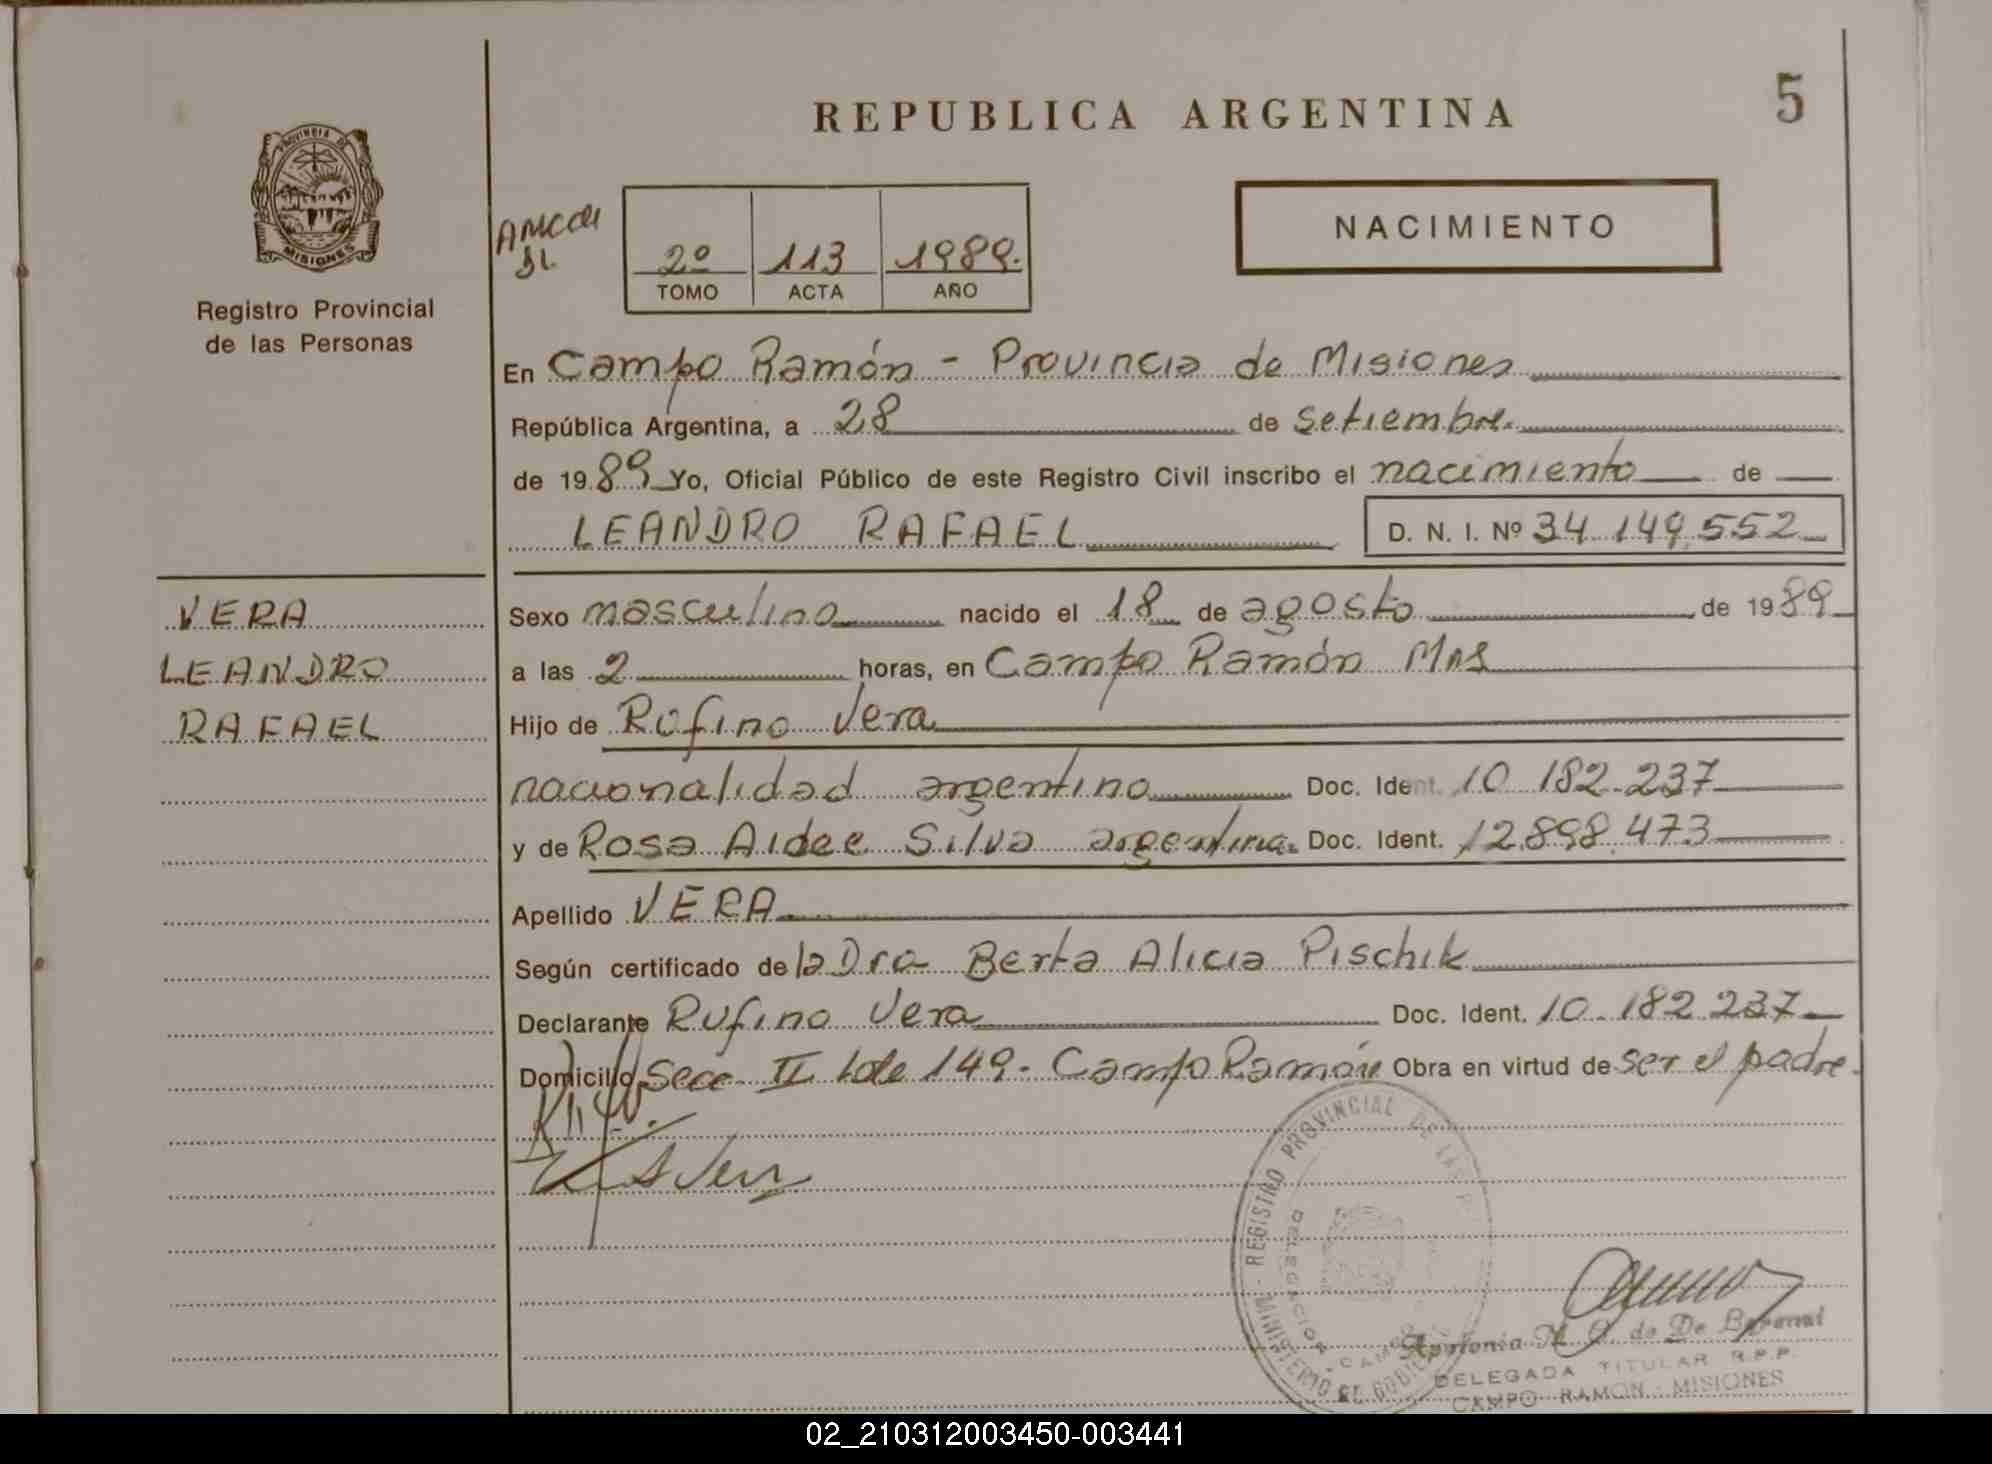 REPUBLICA ARGENTINA
5
PROVINCIA DE
MISIONES
Registro Provincial
de las Personas
2º 113 1989.
TOMO ACTA AÑO
NACIMIENTO
En Campo Ramón - Provincia de Misiones
República Argentina, a 28 de setiembre.
de 1989 Yo, Oficial Público de este Registro Civil inscribo el nacimiento de
LEANDRO RAFAEL D. N. I. Nº 34.149.552
VERA
LEANDRO
RAFAEL
Sexo masculino nacido el 18 de agosto de 1989
a las 2 horas, en Campo Ramón Mns
Hijo de Rufino Vera
nacionalidad argentino Doc. Ident. 10.182.237
y de Rosa Aidee Silva argentina. Doc. Ident. 12.898.473
Apellido VERA
Según certificado de la Dra Berta Alicia Pischik
Declarante Rufino Vera Doc. Ident. 10.182.237
Domicilio Secc II Lote 149 - Campo Ramón Obra en virtud de ser el padre.
REGISTRO PROVINCIAL DE LAS P
MINISTERIO DE GOBIE
DELEGACION
CAMPO
Apolonia M. G. de De
DELEGADA TITULAR R.P.P.
CAMPO RAMON - MISIONES
02_210312003450-003441